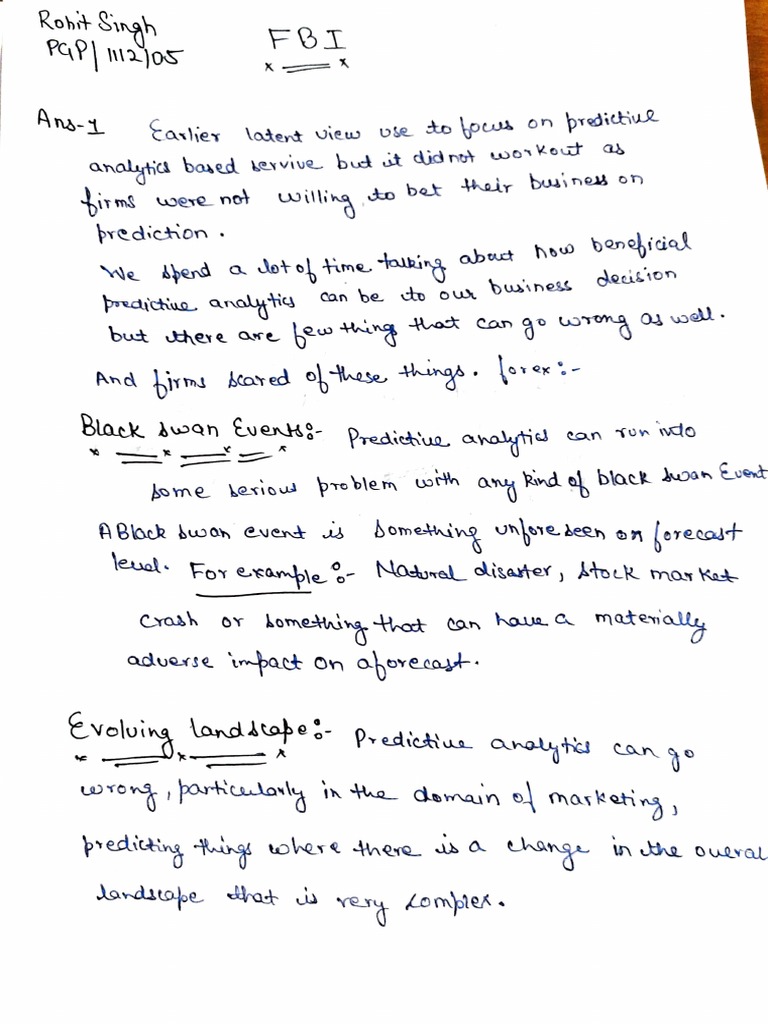 Rohit Singh
PGP/1112/05
FBI
Ans-1 Earlier latent view use to focus on predictive
analytics based servive but it did not workout as
firms were not willing to bet their business on
prediction.
We spend a lot of time talking about how beneficial
predictive analytics can be to our business decision
but there are few thing that can go wrong as well.
And firms scared of these things. forex:-
Black swan Events:- Predictive analytics can run into
some serious problem with any kind of black swan Event
A Black swan event is something unforeseen on forecast
level. For example:- Natural disaster, stock market
crash or something that can have a materially
adverse impact on a forecast.
Evolving landscape:- Predictive analytics can go
wrong, particularly in the domain of marketing,
predicting things where there is a change in the overal
landscape that is very complex.